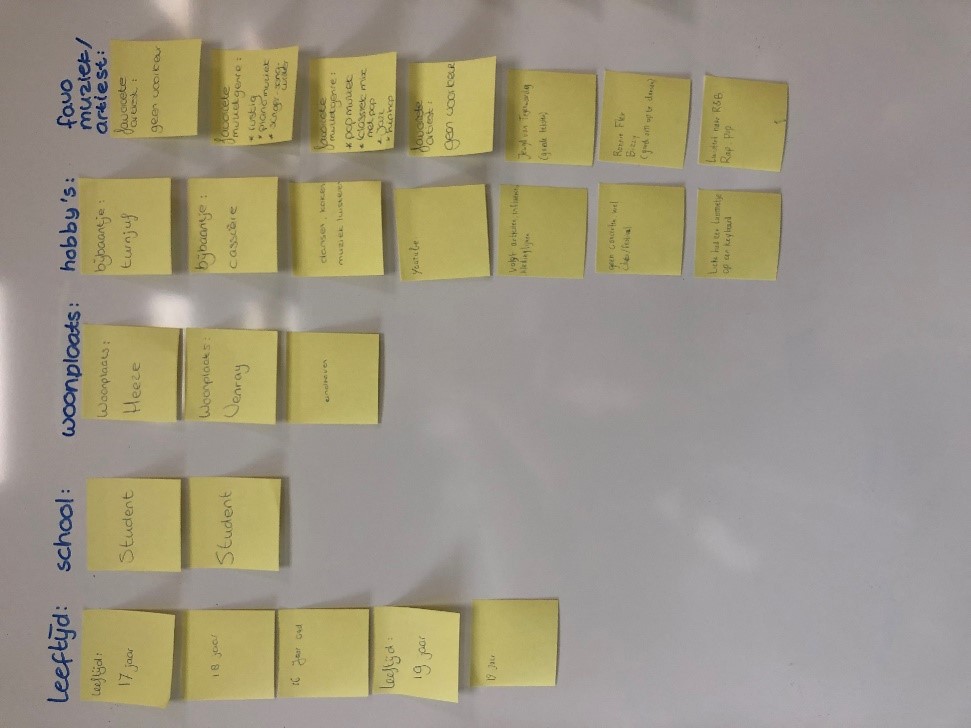 Leeftijd:
Leeftijd:
17 jaar
18 jaar
16 jaar oud
Leeftijd:
19 jaar
17 jaar
school:
Student
Student
woonplaats:
Woonplaats:
Heeze
Woonplaats:
Venray
eindhoven
hobby's:
bijbaantje:
turnjuf
bijbaantje:
cassière
dansen, koken
muziek luisteren
Youtube
Volgt artiesten
geen concerten wel
op een keyboard
favo
muziek/
artiest:
favoriete
artiest:
geen voorkeur
favoriete
muziekgenre:
* rustig
* pianomuziek
* singer song-
favoriete
muziekgenre:
* pop muziek
* klassiek mix
met pop
* jazz
* hiphop
favoriete
artiest:
geen voorkeur
(goede
Ronnie Flex
(goed om op te dansen)
naar R&B
Rap Pop